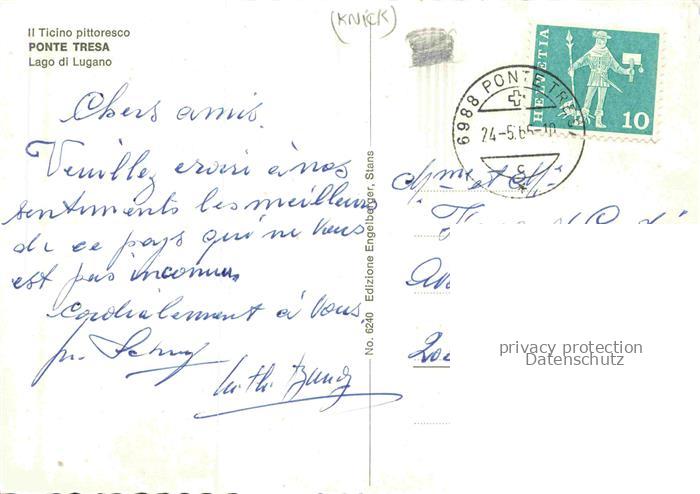 (KNICK)
Il Ticino pittoresco
PONTE TRESA
Lago di Lugano
Chers amis.
Veuillez croire à nos
sentiments les meilleurs
de ce pays qui ne vous
est pas inconnu.
Cordialement à vous.
No. 6240 Edizione Engelberger, Stans
HELVETIA
10
6988 PONTE TRESA
24-5.65-18
Mme et
privacy protection
Datenschutz